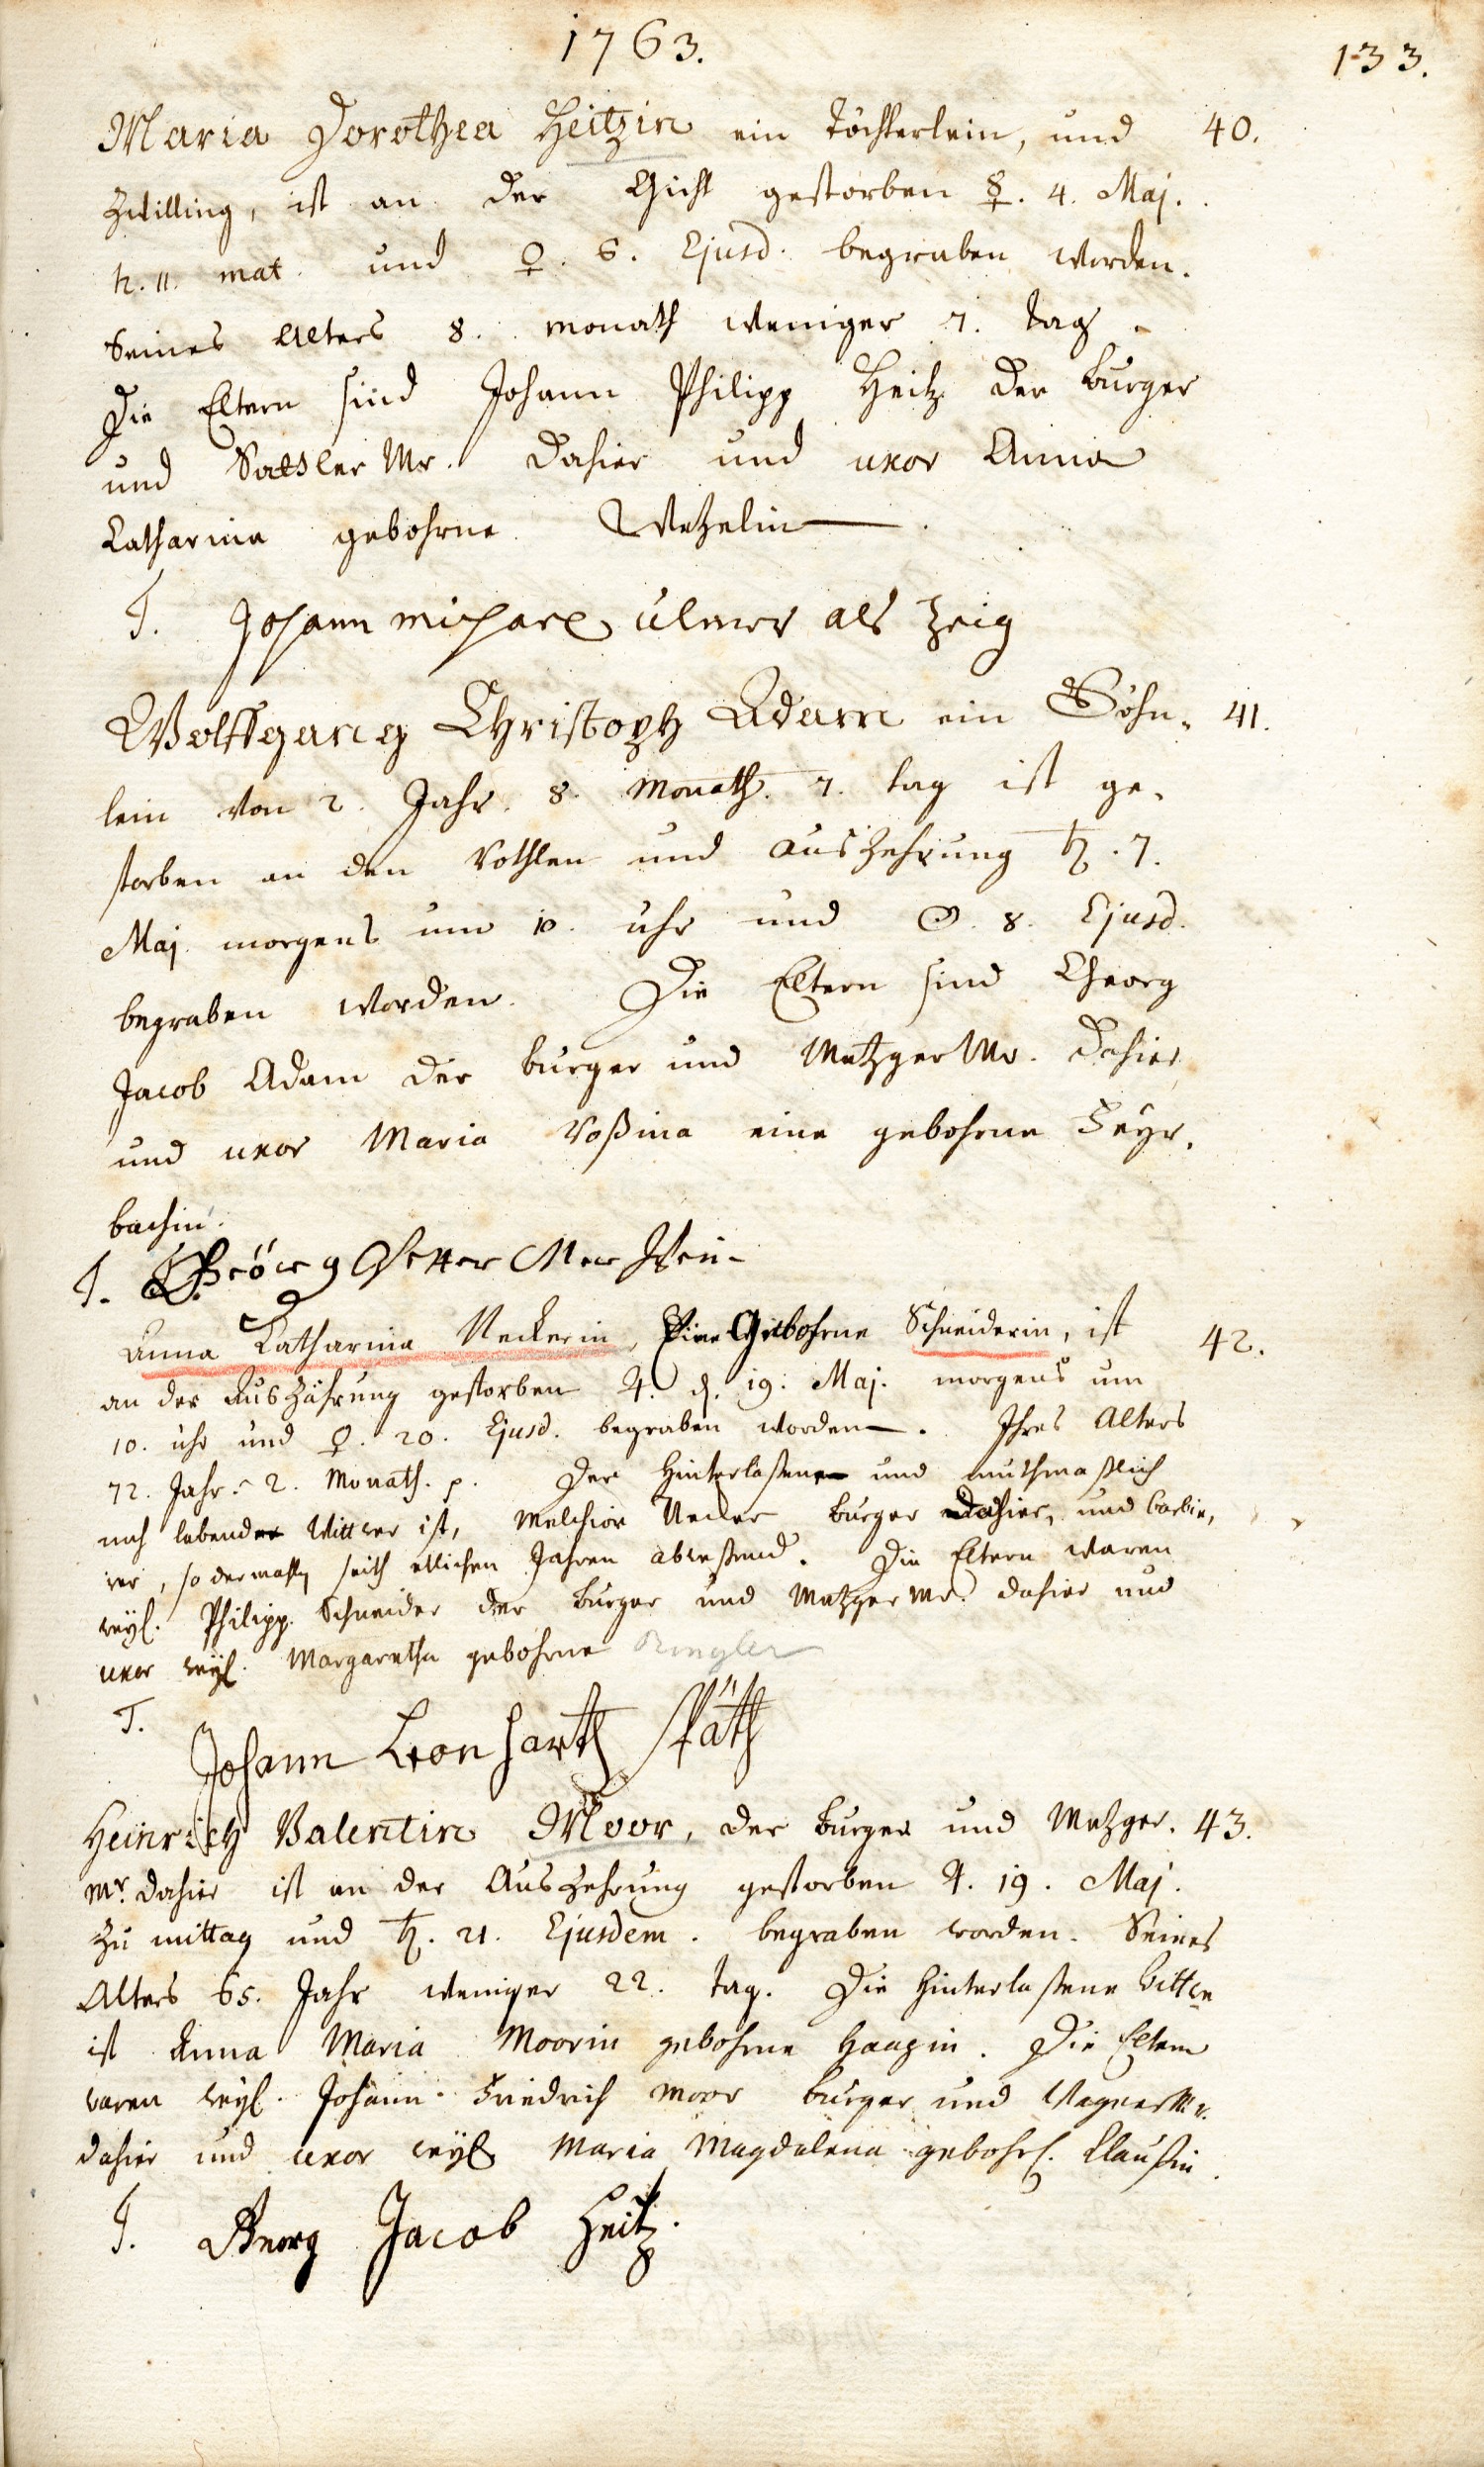 1763.
133.
Maria Dorothea Heitzin ein Töchterlein, und 40.
Zwilling, ist an der Gicht gestorben ☿. 4. Maj.
h. 11. mat. und ♀. 6. Ejusd. begraben worden.
Seines Alters 8. monath weniger 7. tag.
Die Eltern sind Johann Philipp Heitz der burger
und Sattler Mr. dahier und uxor Anna
Catharina gebohrne Wetzelin.
T. Johann michael ulmer als Zeig
Wolffgang Christoph Adam ein Söhn- 41.
lein von 2. Jahr. 8. Monath. 7. tag ist ge-
storben an den Rothlen und auszehrung ♄. 7.
Maj. morgens um 10. uhr und ☉. 8. Ejusd.
begraben worden. Die Eltern sind Georg
Jacob Adam der burger und Metzger Mr. dahier
und uxor Maria Rosina eine gebohrne Feyr-
bachin.
T. Geörg
Anna Catharina Neckerin, Eine Gebohrne Schneiderin, ist 42.
an der Auszährung gestorben ♃. d. 19. Maj. morgens um
10. uhr und ♀. 20. Ejusd. begraben worden. Ihres Alters
72. Jahr. 2. Monath. p. Der Hinterlaßene und muthmaßlich
noch lebende Wittwer ist, Melchior Necker burger dahier, und barbie-
rer, so dermahlen seith etlichen Jahren abweßend. Die Eltern waren
weyl. Philipp Schneider der burger und Metzger Mr. dahier und
uxor weyl. Margaretha gebohrne Ringler
T.
Johann Leonharth Späth
Heinrich Valentin Moor, der burger und Metzger- 43.
Mr. dahier ist an der Auszehrung gestorben ♃. 19. Maj.
zu mittag und ♄. 21. Ejusdem. begraben worden. Seines
Alters 65. Jahr weniger 22. tag. Die hinterlaßene Wittwe
ist Anna Maria Moorin gebohrne Haagin. Die Eltern
waren weyl. Johann Friedrich Moor burger und Wagner Mr.
dahier und uxor weyl. Maria Magdalena gebohrl. Claußin.
T. Georg Jacob Heitz.